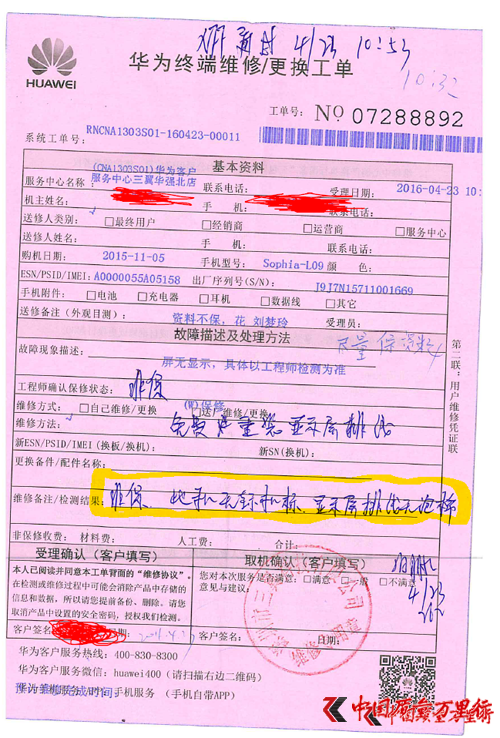 4/23 10:53
HUAWEI
华为终端维修/更换工单
10:32
工单号: NO 07288892
系统工单号: RNCNA1303S01-160423-00011
基本资料
服务中心名称: (CNA1303S01)华为客户服务中心三翼华强北店 联系电话: 受理日期: 2016-04-23 10:
机主姓名: 手 机: 联系电话:
送修人类别: □最终用户 □经销商 □运营商 □服务中心
送修人姓名: 手 机: 联系电话:
购机日期: 2015-11-05 手机型号: Sophia-L09 颜 色:
ESN/PSID/IMEI: A0000055A05158 出厂序列号(S/N): J9J7N15711001669
手机附件: □电池 □充电器 □耳机 □数据线 □其它
送修备注(外观目测): 资料不保, 花 刘梦玲 受理员:
故障描述及处理方法
尽量保资料
故障现象描述: 屏无显示, 具体以工程师检测为准
工程师确认保修状态: 非保
维修方式: □自己维修/更换 □送厂维修/更换
维修方法: 免费 重装显示屏排线
新ESN/PSID/IMEI(换板/换机): 新SN(换机):
更换备件/配件名称:
维修备注/检测结果: 非保、此手机无
非保修收费: 材料费: 人工费: 合计:
第二联: 用户维修凭证联
受理确认(客户填写) 取机确认(客户填写)
本人已阅读并同意本工单背面的“维修协议”。
在检测或维修过程中可能会消除产品中存储的
信息和数据, 所以请您提前备份、删除。请您
取消产品中设置的安全密码, 授权我们检测。
您对本次服务是否满意: □满意 □一般 □不满意
意见与建议:
4/23
客户签名: 客户签名: 日期:
维修专用章
华为客户服务热线: 400-830-8300
华为客户服务微信: huawei400(请扫描右边二维码)
手机服务(手机自带APP)
中国质量万里行